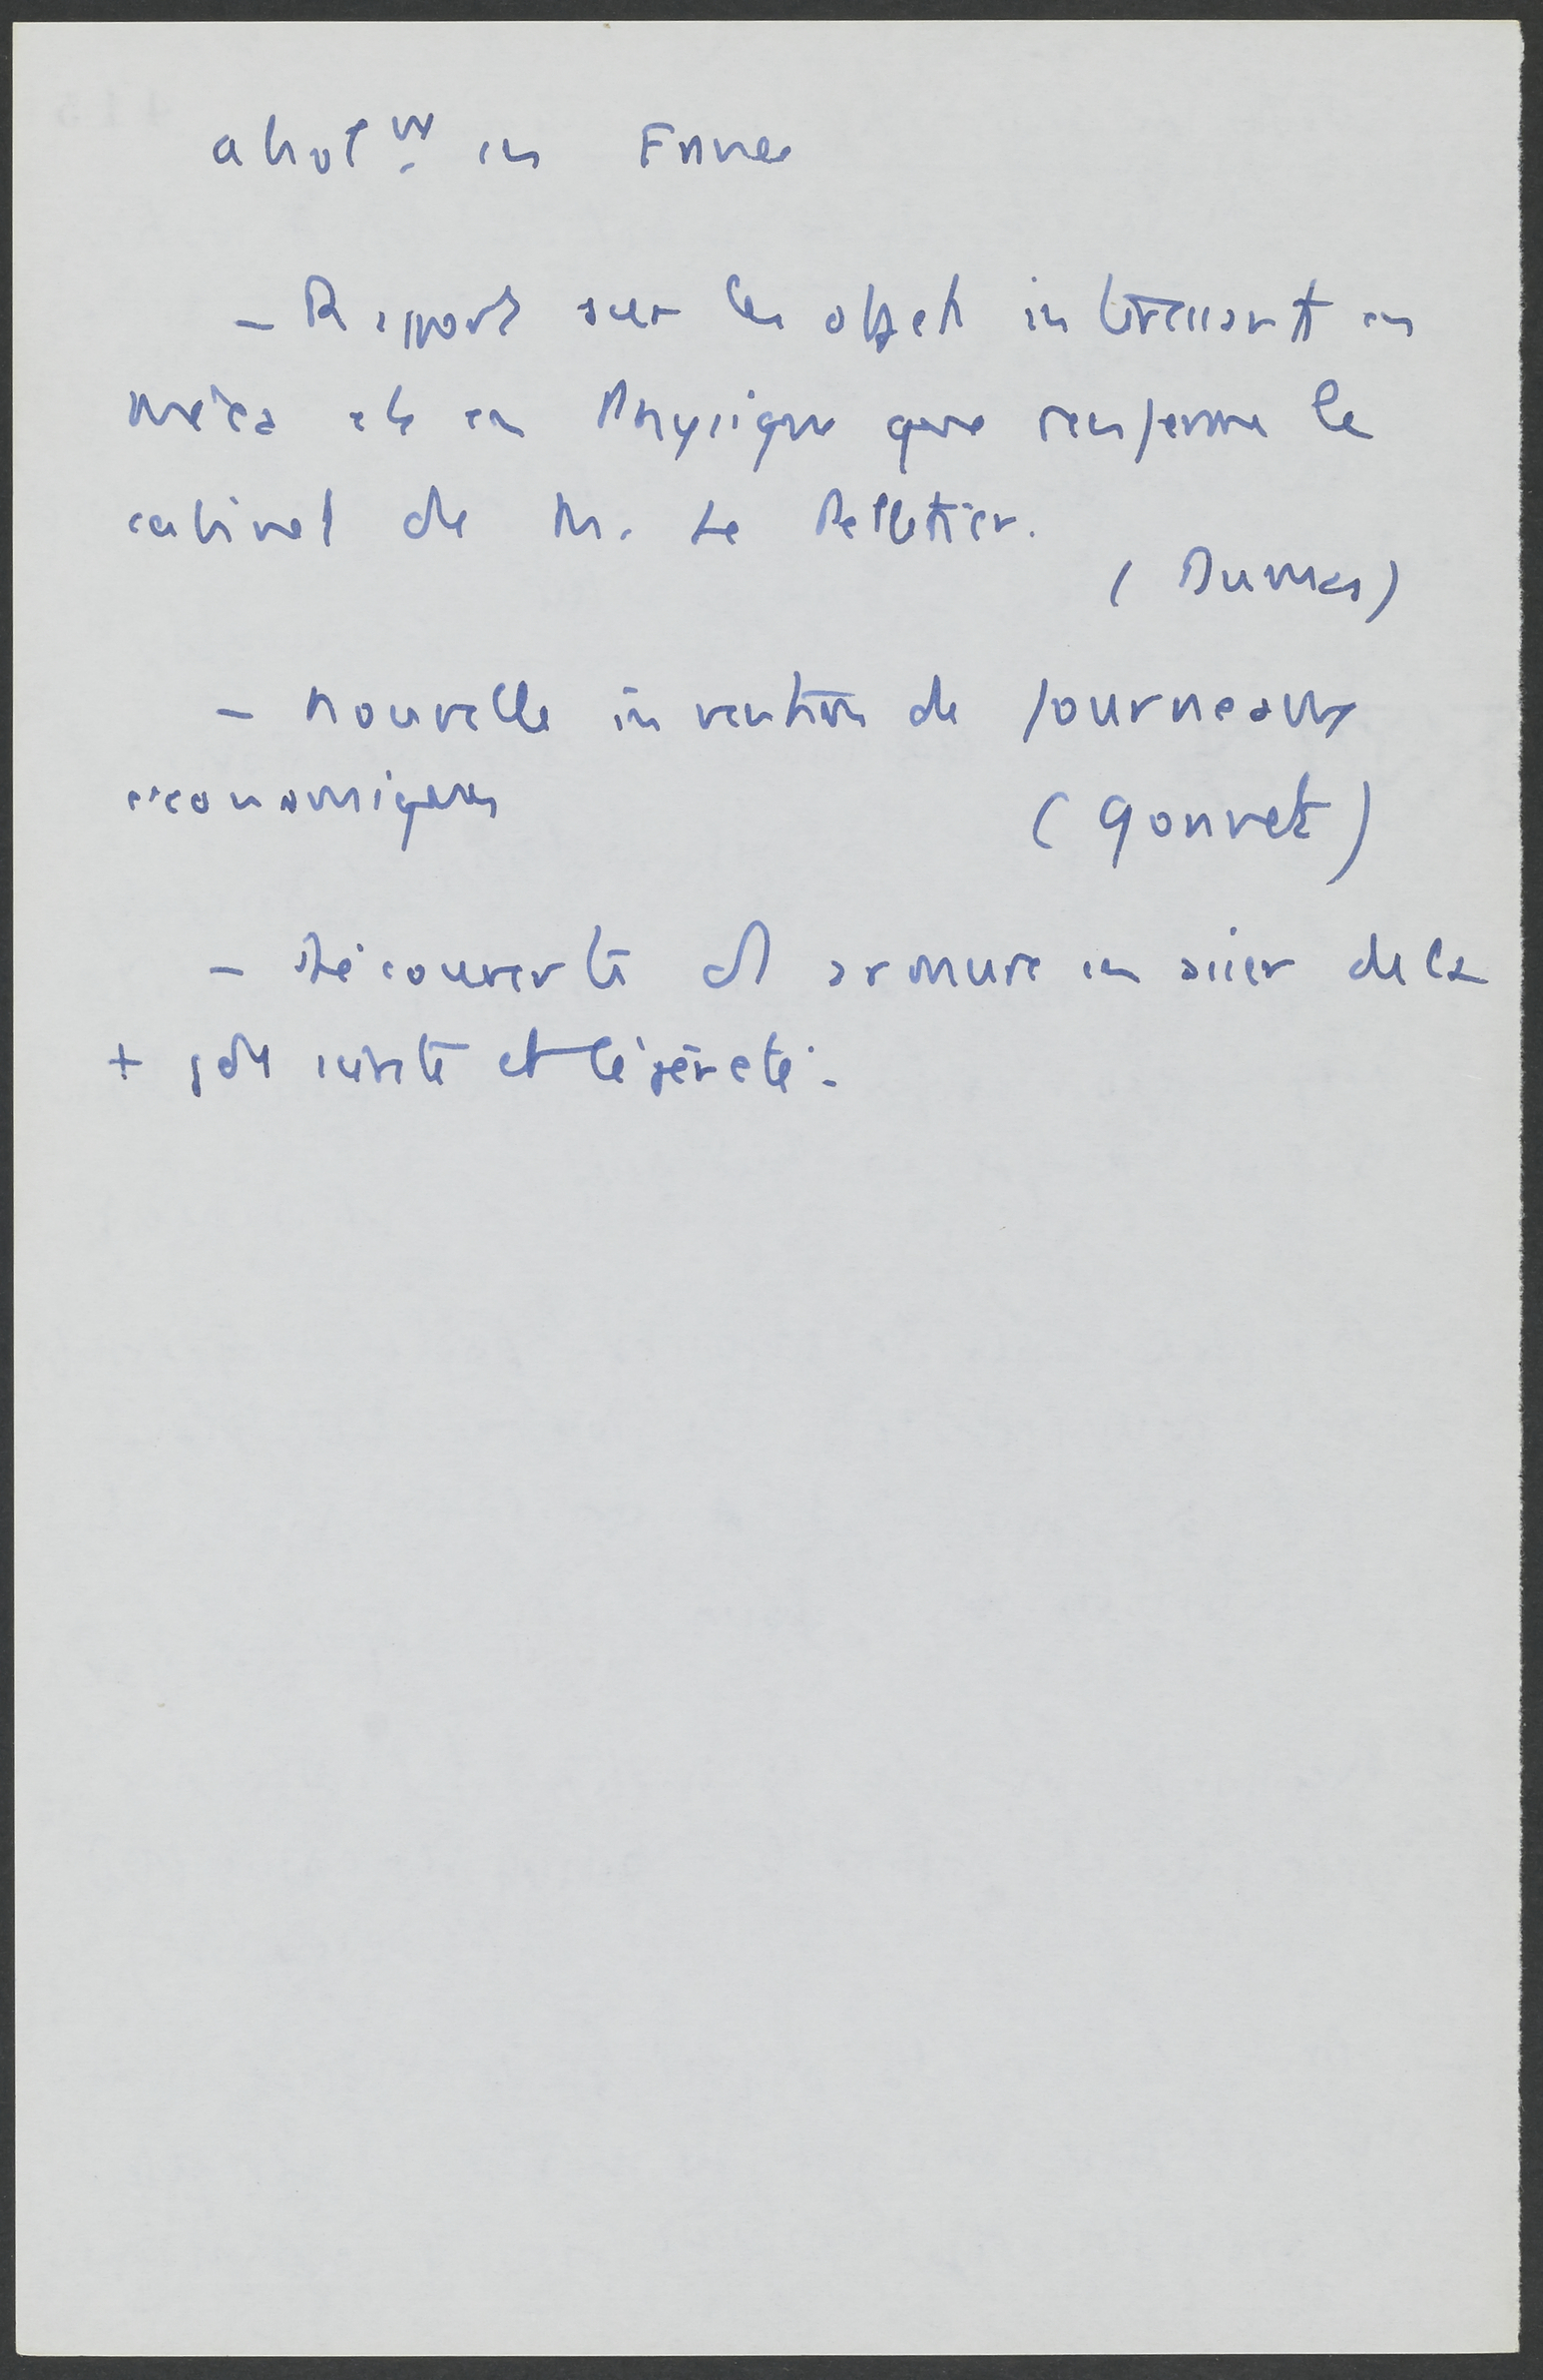 abol^on en France
- Rapport sur les objets intéressants en
méca et en Physique que renferme le
cabinet de M. Le Pelletier.
( Dumas)
- Nouvelle invention de fourneaux
économiques (Gonnet)
- Découverte d'1 armure en acier de la
+ gde sureté et légèreté.